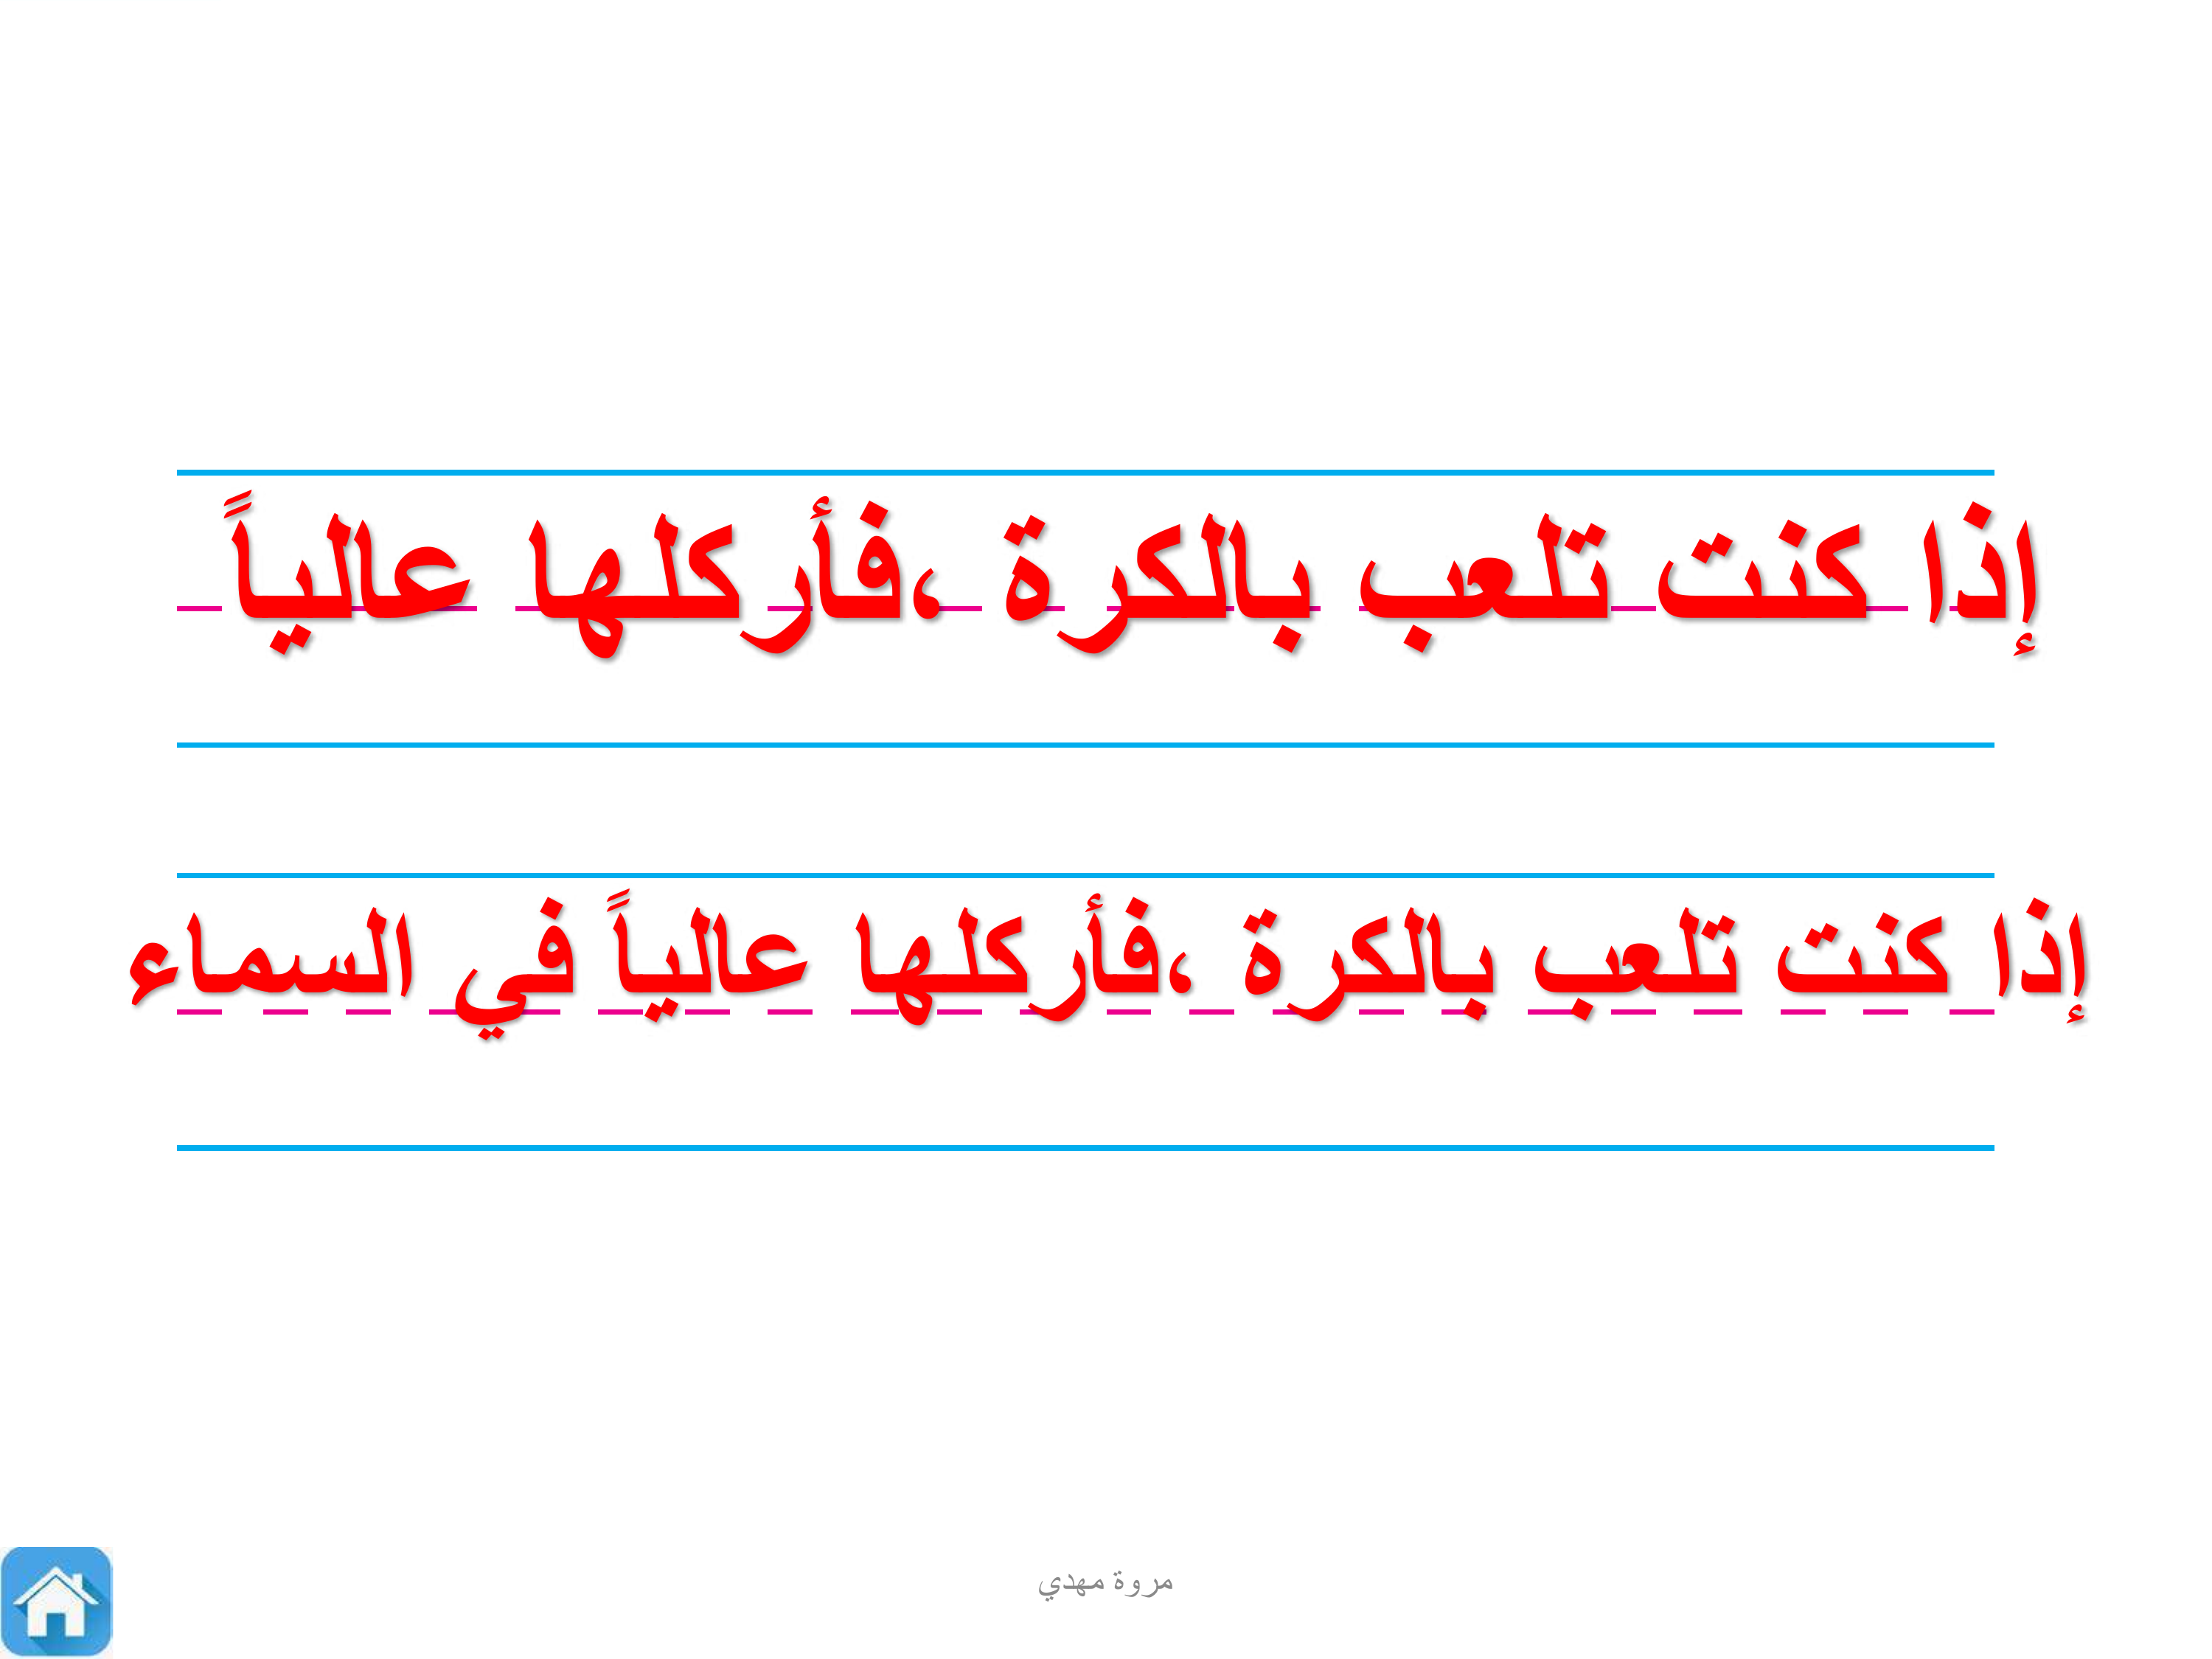 إذا كنت تلعب بالكرة ،فأركلها عالياً
إذا كنت تلعب بالكرة ،فأركلها عالياً في السماء
مروة مهدي